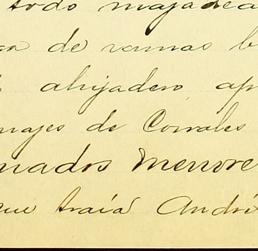 todo majadea
de ramas b
ahijadero ap
najes de Corrales
nados menore
que traía Andr